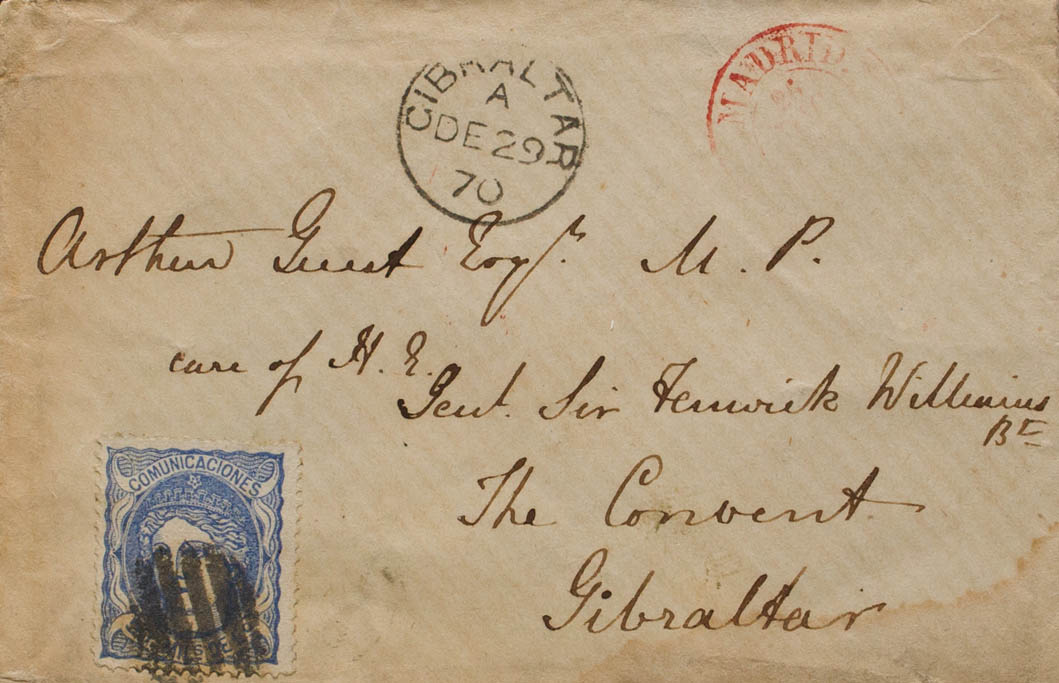 MADRID
GIBRALTAR
A
DE 29
70
Arthur Guest Esqr. M. P.
care of H. E.
Genl. Sir Fenwick Williams
Bt
The Convent
Gibraltar
COMUNICACIONES